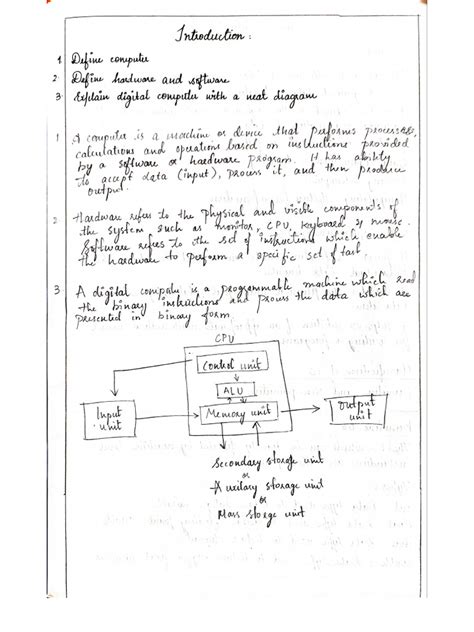 Introduction :
1. Define computer
2. Define hardware and software
3. Explain digital computer with a neat diagram
1 A computer is a machine or device that performs processes,
calculations and operations based on instructions provided
by a software or hardware program. It has ability
to accept data (input), process it, and then produce
output.
2 Hardware refers to the physical and visible components of
the system such as monitor, CPU, keyboard & mouse.
Software refers to the set of instructions which enable
the hardware to perform a specific set of task.
3 A digital computer is a programmable machine which read
the binary instructions and process the data which are
presented in binary form.
CPU
Control unit
ALU
Input
unit
Memory unit
Output
unit
Secondary storage unit
or
Auxilary storage unit
or
Mass storge unit